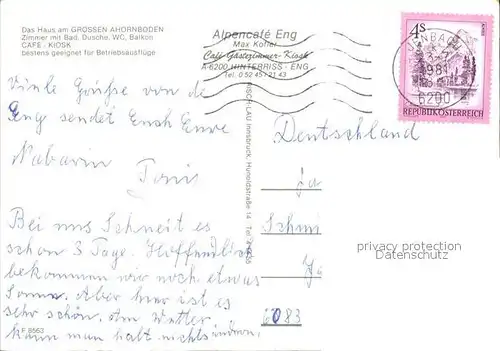 Das Haus am GROSSEN AHORNBODEN
Zimmer mit Bad, Dusche, WC, Balkon
CAFE - KIOSK
bestens geeignet für Betriebsausflüge
Alpencafé Eng
Max Kofler
Café Gästezimmer-Kiosk
A-6200 HINTERRISS - ENG
Tel. 0 52 45 / 21 43
4S
REPUBLIK ÖSTERREICH
1981
6200
Innsbruck, Hunoldstraße 14 Tel.
Viele Grüße von de
Eng sendet Euch Eure
Nabarin
Toni
Bei uns Schneit es
schon 3 Tage. Hoffentlich
bekommen wir noch etwas
Sonne. Aber hier ist es
sehr schön, am Wetter
kann man halt nichts ändern.
F 8563
Deutschland
Schmi
6083
privacy protection
Datenschutz